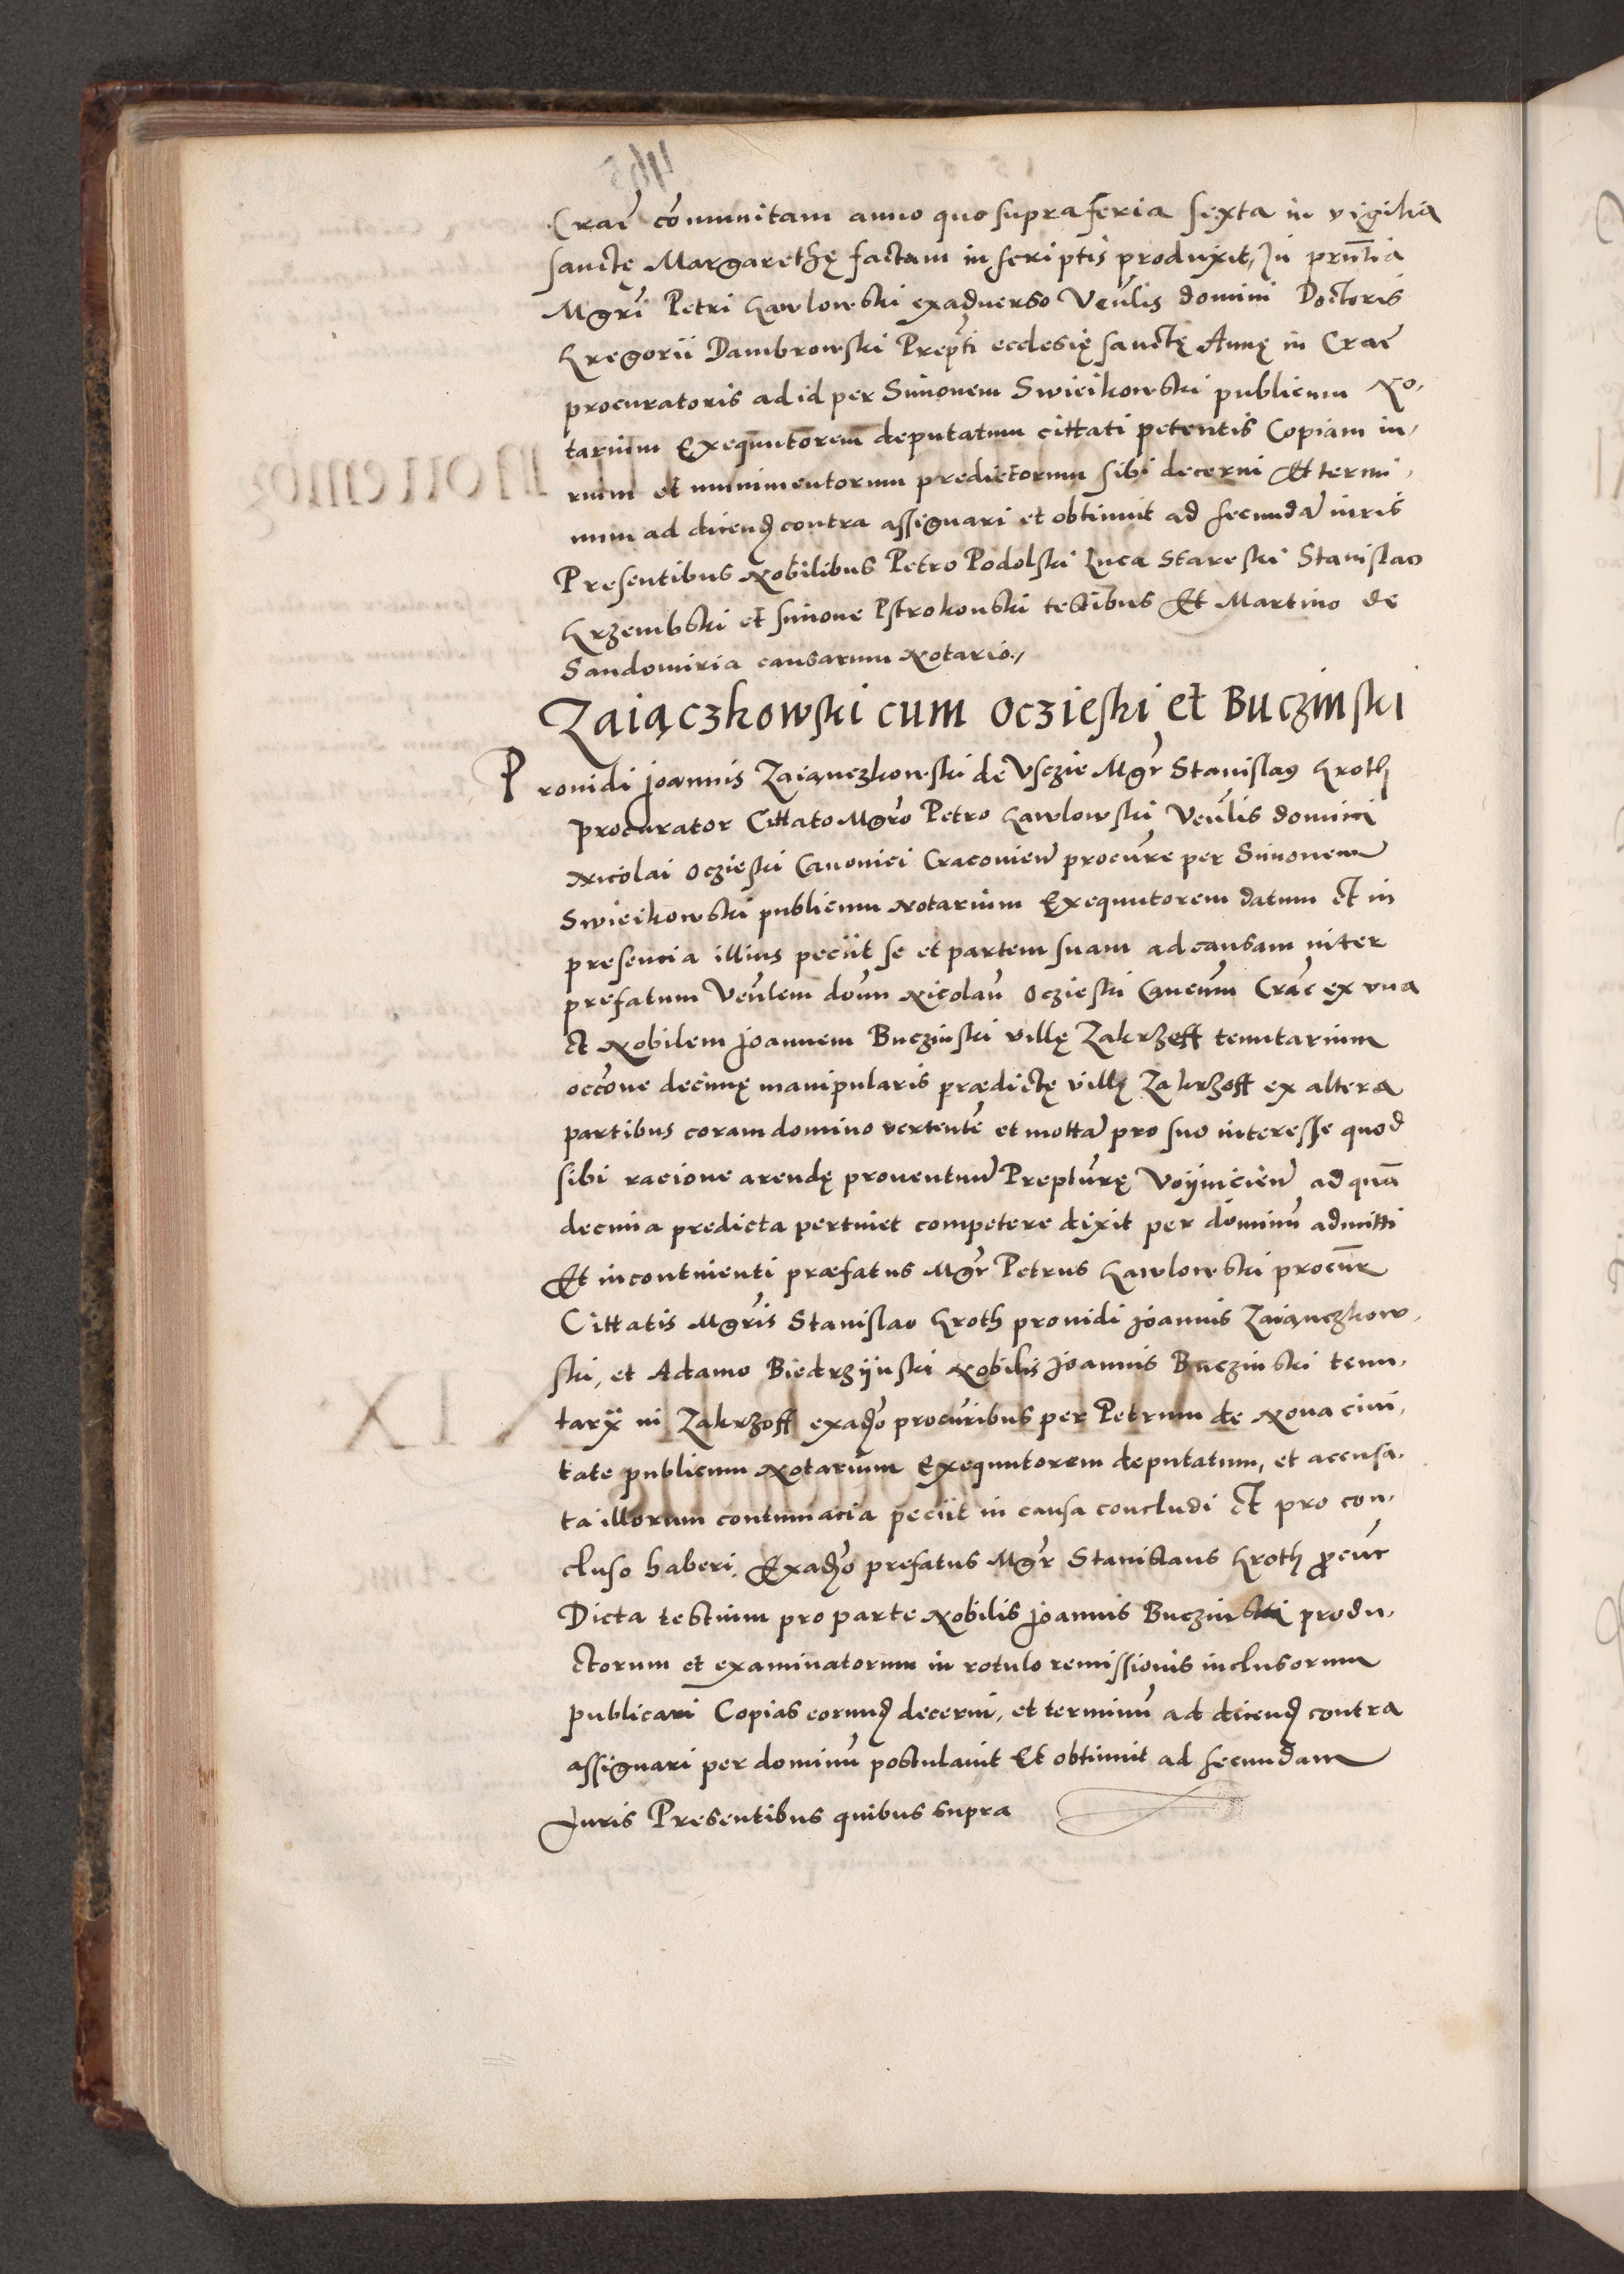 Crac̄ com̄munitam anno quo supra feria sexta in vigilia
sanctę Margarethę factam in scriptis produxit, In pn̄tia
Mgrī Petri Gawlowski exaduerso Ven̄lis domini Doctoris
Gregorii Dambrowski Prepti ecclesię sanctę Annę in Crac̄
procuratoris ad id per Simonem Swieikowski publicum No,
tarium Exequutorem deputatum cittati petentis Copiam iu,
rium et munimentorum predictorum sibi decerni Et termi,
num ad dicend contra assignari et obtinuit ad secundā iuris
Presentibus Nobilibus Petro Podolski Luca Stareski Stanislao
Grzembski et Simone Pstrokonski testibus Et Martino de
Sandomiria causarum Notario.,
Zaiączkowski cum Oczieski et Buczinski
Prouidi Joannis Zaiąnczkowski de Vsczie Mgr̄ Stanislaus Groth
procurator Cittato Mgrō Petro Gawlowski Ven̄lis domini
Nicolai Oczieski Canonici Cracovien̄ procur̄e per Simonem
Swieikowski publicum Notarium Exequutorem datum Et in
presencia illius peciit se et partem suam ad causam inter
prefatum Ven̄lem don̄m Nicolaū Oczieski Can̄cum Crac̄ ex vna
Et Nobilem Joannem Buczinski villę Zakrzeff tenutarium
occ̄one decimę manipularis prædictę villę Zakrzoff ex altera
partibus coram domino vertentē et mottā pro suo interesse quod
sibi racione arendę prouentuū Prepturę Voÿnicien̄ ad quā
decima predicta pertinet competere dixit per dominū admitti
Et incontinenti præfatus Mgr̄ Petrus Gawlowski procur̄
Cittatis Mgrīs Stanislao Groth prouidi Joannis Zaiąnczkow,
ski, et Adamo Biedrzÿnski Nobilis Joannis Buczinski tenu,
tarÿ in Zakrzoff exad̄o procur̄ibus per Petrum de Noua ciui,
tate publicum Notarium Exequutorem deputatum, et accusa,
ta illorum contumacia peciit in causa concludi Et pro con,
cluso haberi. Exad̄o prefatus Mgr̄ Stanislaus Groth procur̄
Dicta testium pro parte Nobilis Joannis Buczinski produ,
ctorum et examinatorum in rotulo remissionis inclusorum
publicari Copias eorund decerni, et terminū ad dicend contra
assignari per dominū postulauit Et obtinuit ad secundam
Juris Presentibus quibus supra